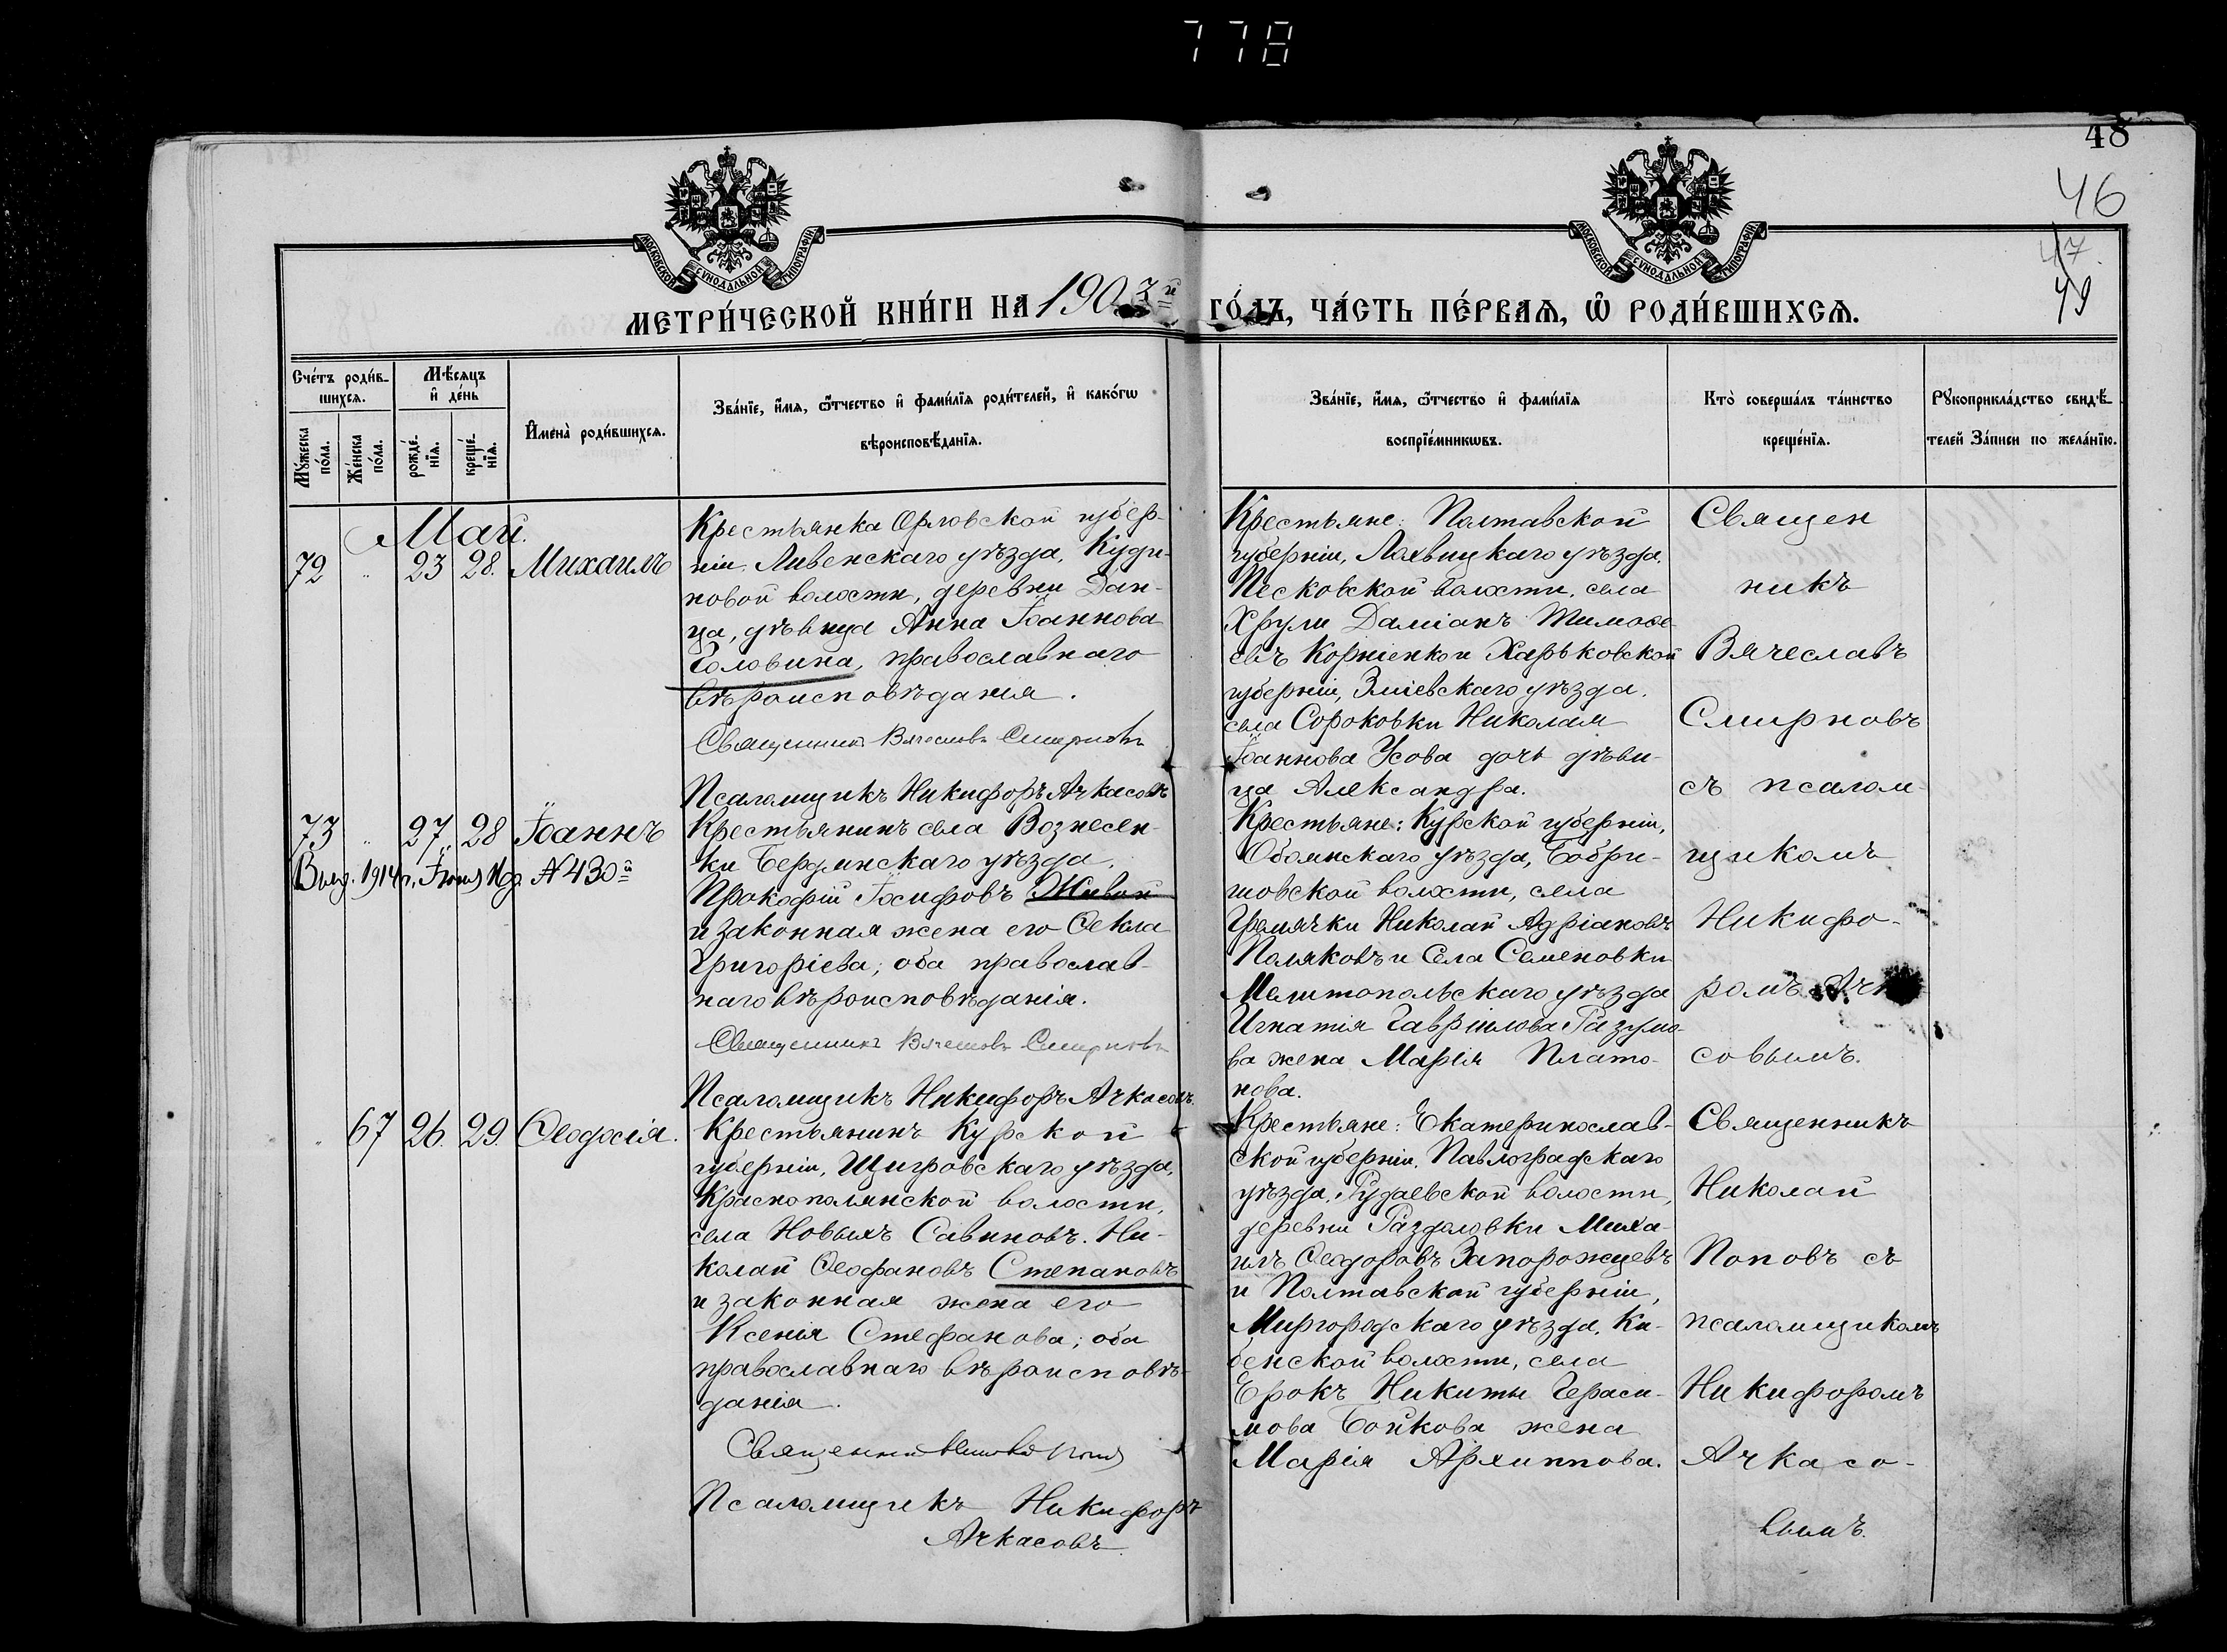 778
48
46
47
49
МОСКОВСКОЙ СѴНОДАЛЬНОЙ ТИПОГРАФІИ
МОСКОВСКОЙ СѴНОДАЛЬНОЙ ТИПОГРАФІИ
МЕТРИ́ЧЕСКОЙ КНИ́ГИ НА 1903й ГО́ДЪ, ЧА́СТЬ ПЕ́РВАѦ, Ѽ РОДИ́ВШИХСѦ.
Сче́тъ роди́в-
шихсѧ.
Мѣ́сѧцъ
и҆ де́нь
Мꙋ́жеска по́ла.
Же́нска по́ла.
рожде́-
нїѧ.
креще́-
нїѧ.
И҆мена̀ роди́вшихсѧ.
Зва́нїе, и҆́мѧ, ѻ҆́тчество и҆ фами́лїѧ роди́телей, и҆ како́гѡ
вѣроисповѣ́данїѧ.
Зва́нїе, и҆́мѧ, ѻ҆́тчество и҆ фами́лїѧ
воспрїе́мникѡвъ.
Кто̀ соверша́лъ та́инство
креще́нїѧ.
Рꙋкоприкла́дство свидѣ́-
телей за́писи по жела́нїю.
Май.
72 " 23 28. Михаилъ
Крестьянка Орловской губер-
ніи, Ливенскаго уѣзда, Куди-
новой волости, деревни Дан-
ца, дѣвица Анна Іоаннова
Головина, православнаго
вѣроисповѣданія.
Священникъ Вячеславъ Смирновъ
Псаломщикъ Никифоръ Ачкасовъ
Крестьяне: Полтавской
губерніи, Лохвицкаго уѣзда,
Песковской волости, села
Хрули Даміанъ Тимоѳе-
евъ Корніенко и Харьковской
губерніи, Зміевскаго уѣзда,
села Сороковки Николая
Іоаннова Усова дочь дѣви-
ца Александра.
Священ
никъ
Вячеславъ
Смирновъ
съ псалом-
щикомъ
Никифо-
ромъ Ачк
совымъ.
73 " 27 28 Іоаннъ
Выд. 1914 г. Іюня 16 д. № 430й
Крестьянинъ села Вознесен-
ки Бердянскаго уѣзда,
Прокофій Іосифовъ Живой
и законная жена его Ѳекла
Григоріева; оба православ-
наго вѣроисповѣданія.
Священникъ Вячеславъ Смирновъ
Псаломщикъ Никифоръ Ачкасовъ.
Крестьяне: Курской губерніи,
Обоянскаго уѣзда, Бобри-
шовской волости, села
Гремячки Николай Адріановъ
Поляковъ и села Семеновки
Мелитопольскаго уѣзда
Игнатія Гавріилова Разумо-
ва жена Марія Плато-
нова.
" 67 26. 29. Ѳеодосія.
Крестьянинъ Курской
губерніи, Щигровскаго уѣзда,
Краснополянской волости,
села Новыхъ Савиновъ. Ни-
колай Ѳеофановъ Степановъ
и законная жена его
Ксенія Стефанова; оба
православнаго вѣроисповѣ-
данія.
Священникъ
Псаломщикъ Никифоръ
Ачкасовъ.
Крестьяне: Екатеринослав-
ской губерніи, Павлоградскаго
уѣзда, волости,
деревни Раздоловки Миха-
илъ Ѳеодоровъ Запорожцевъ
и Полтавской губерніи,
Миргородскаго уѣзда, Ки-
бенской волости, села
Ерокъ Никиты Гераси-
мова Бойкова жена
Марія Архиппова.
Священникъ
Николай
Поповъ съ
псаломщикомъ
Никифоромъ
Ачкасо-
вымъ.